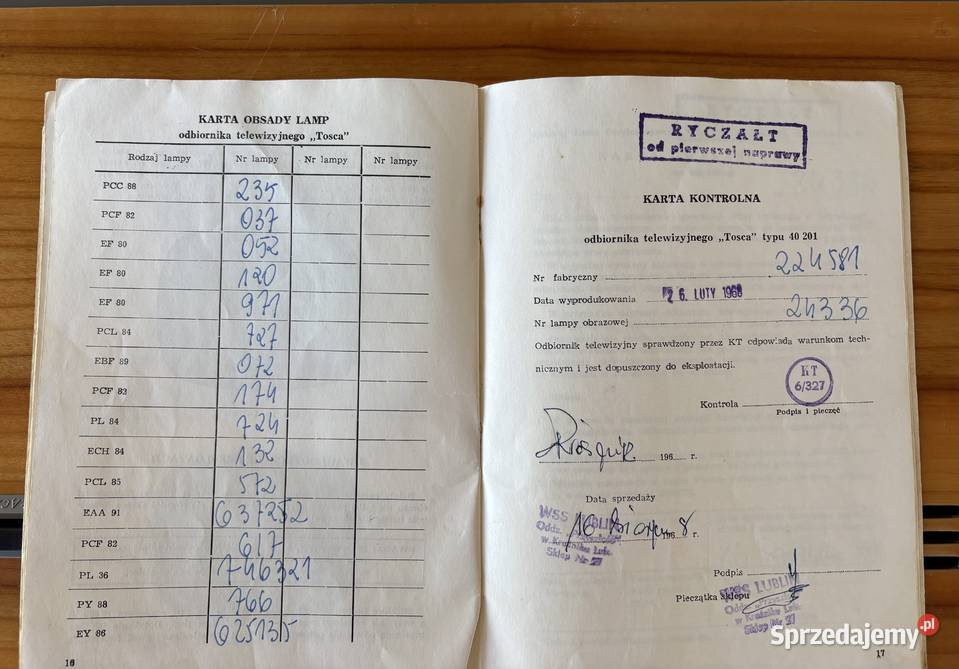 KARTA OBSADY LAMP
odbiornika telewizyjnego „Tosca"
Rodzaj lampy Nr lampy Nr lampy Nr lampy
PCC 88 235
PCF 82 037
EF 80 052
EF 80 120
EF 80 971
PCL 84 727
EBF 89 072
PCF 82 174
PL 84 724
ECH 84 132
PCL 85 572
EAA 91 637252
PCF 82 617
PL 36 746321
PY 88 766
EY 86 625135
16
RYCZAŁT
od pierwszej naprawy
KARTA KONTROLNA
odbiornika telewizyjnego „Tosca" typu 40 201
Nr fabryczny 224581
Data wyprodukowania 26. LUTY 1968
Nr lampy obrazowej 24336
Odbiornik telewizyjny sprawdzony przez KT odpowiada warunkom tech-
nicznym i jest dopuszczony do eksploatacji.
KT
6/327
Kontrola
Podpis i pieczęć
196 r.
Data sprzedaży
WSS LUBLIN
Oddz.
w Kraśniku Lub.
Sklep Nr 21
16 1968 r.
Podpis
Pieczątka sklepu
WSS LUBLIN
Oddz.
w Kraśniku Lub.
Sklep Nr 21
17
Sprzedajemy.pl